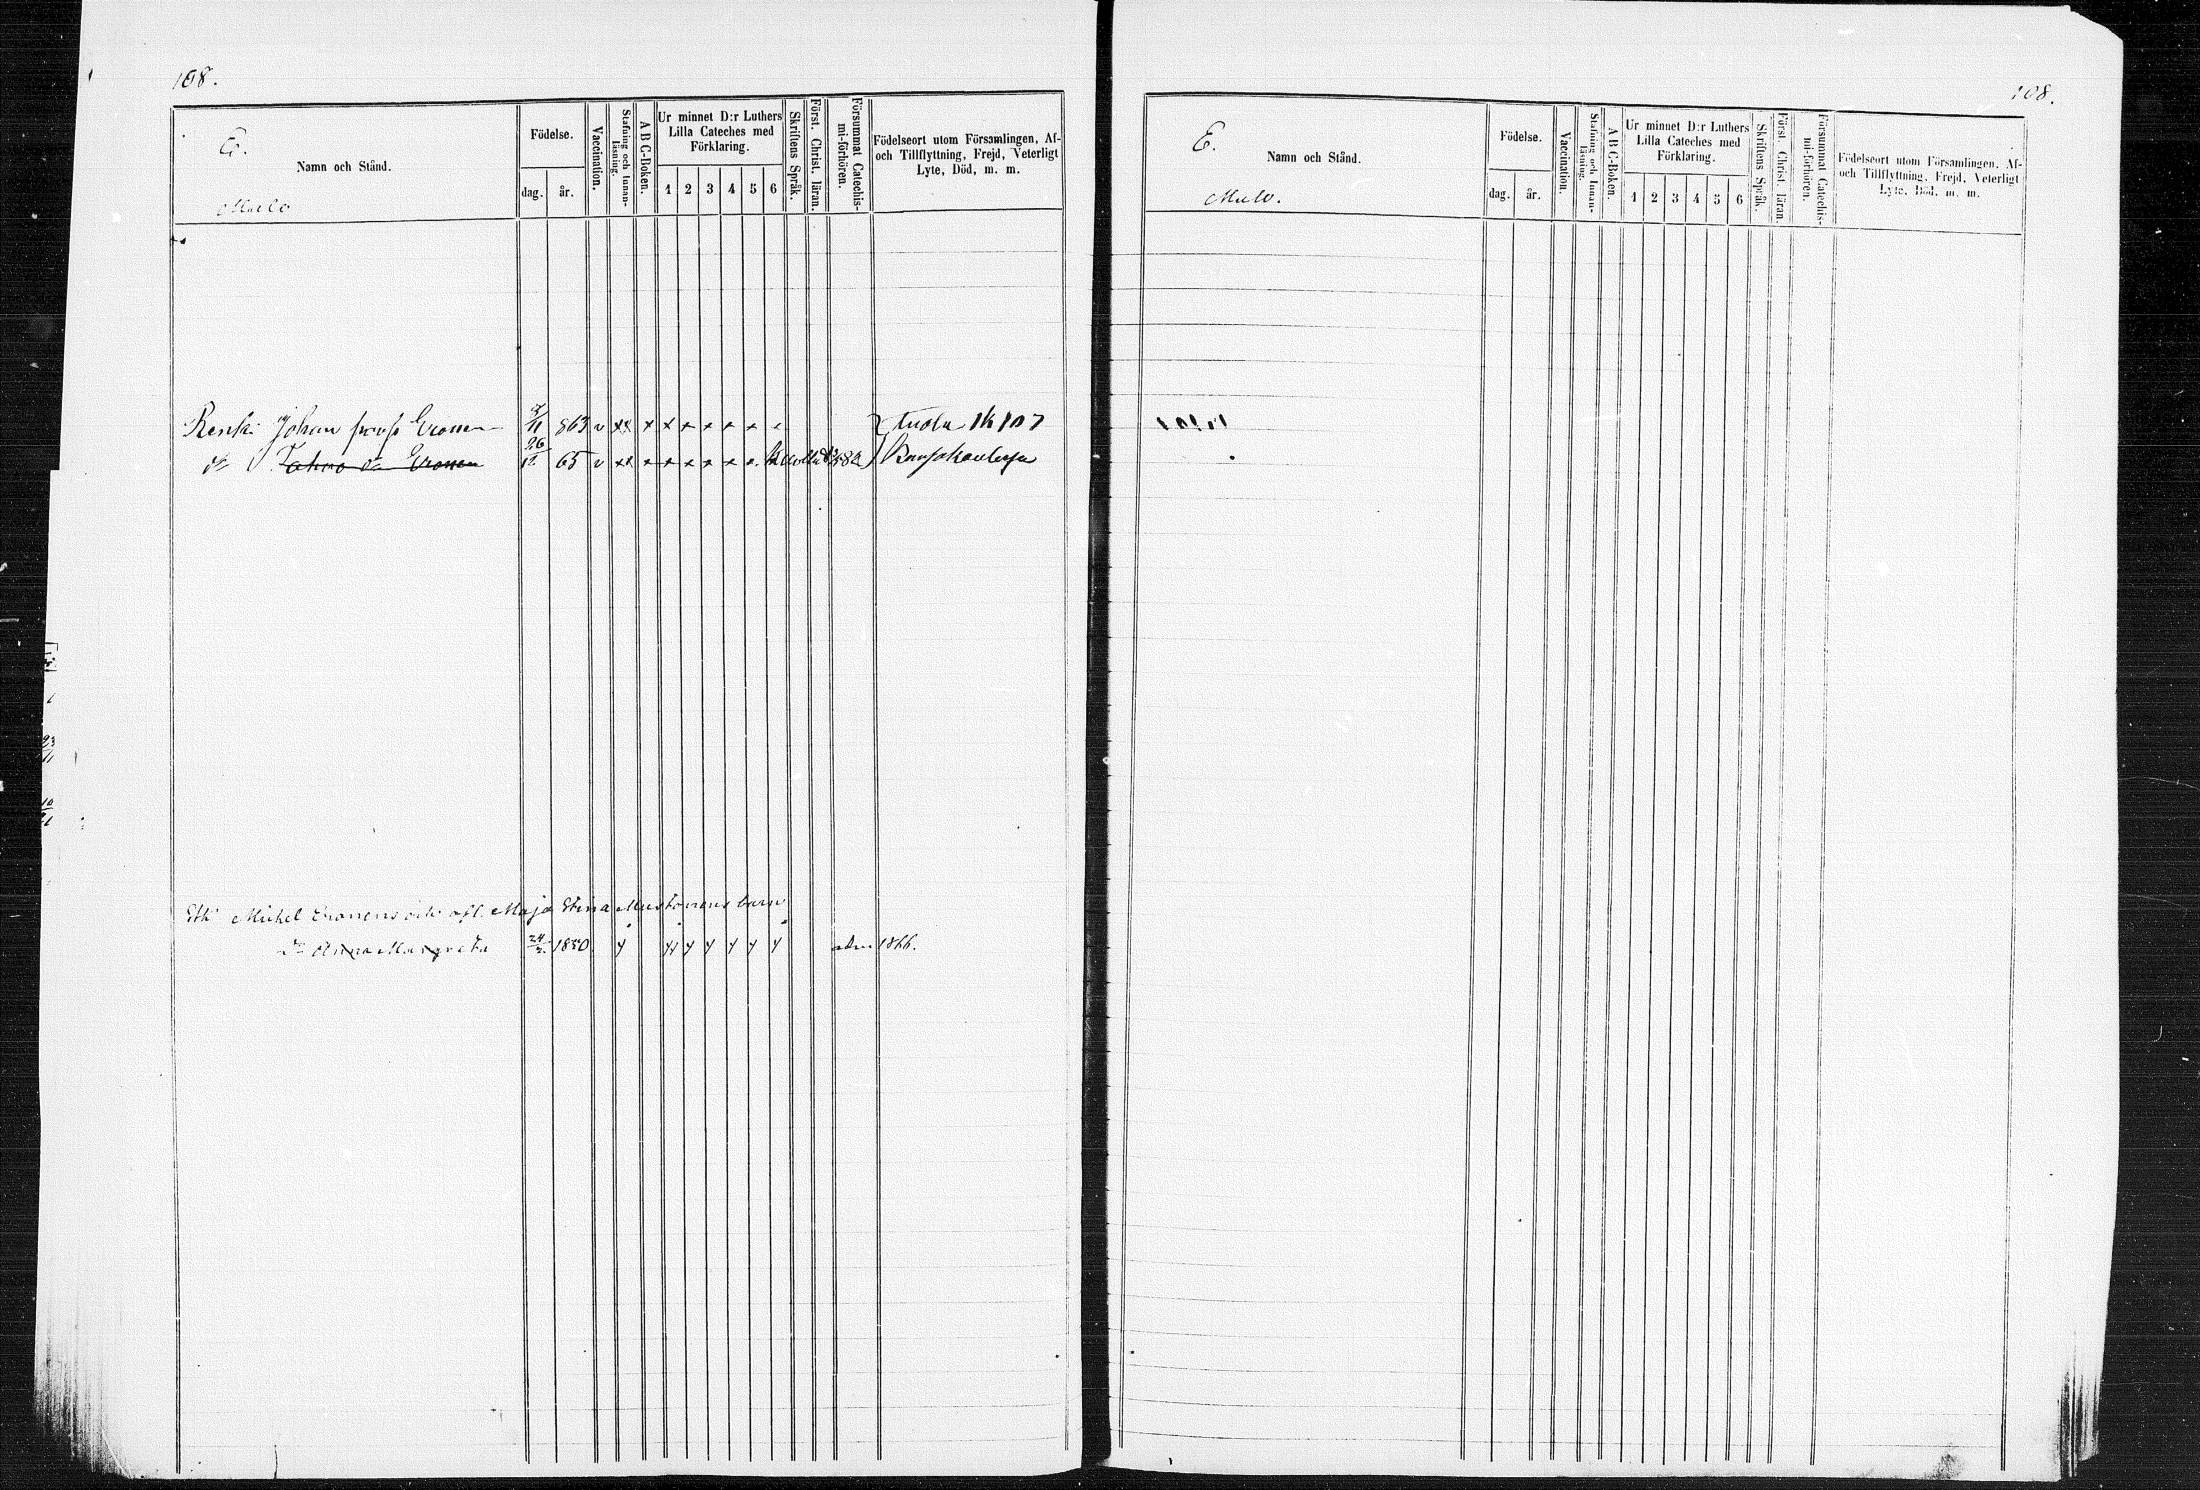 108.
E.
Namn och Stånd.
Mulo
Födelse.
dag. år.
Vaccination.
Stafning och Innanläsning.
A B C-Boken.
Ur minnet D:r Luthers
Lilla Cateches med
Förklaring.
1 2 3 4 5 6
Skriftens Språk.
Först. Christ. läran.
Försummat Catechismi-förhören.
Födelseort utom Församlingen, Af-
och Tillflyttning, Frejd, Veterligt
Lyte, Död, m. m.
Renki Johan Eronen 863 v xx x x x x x x x
65 v xx x x x x x x
Michel Eronens och Maja Stina Mustonens barn
Anna Margreta 24/2 1850 1866.
108.
E.
Namn och Stånd.
Mulo.
Födelse.
dag. år.
Vaccination.
Stafning och Innanläsning.
A B C-Boken.
Ur minnet D:r Luthers
Lilla Cateches med
Förklaring.
1 2 3 4 5 6
Skriftens Språk.
Först. Christ. läran.
Försummat Catechismi-förhören.
Födelseort utom Församlingen, Af-
och Tillflyttning, Frejd, Veterligt
Lyte, Död, m. m.